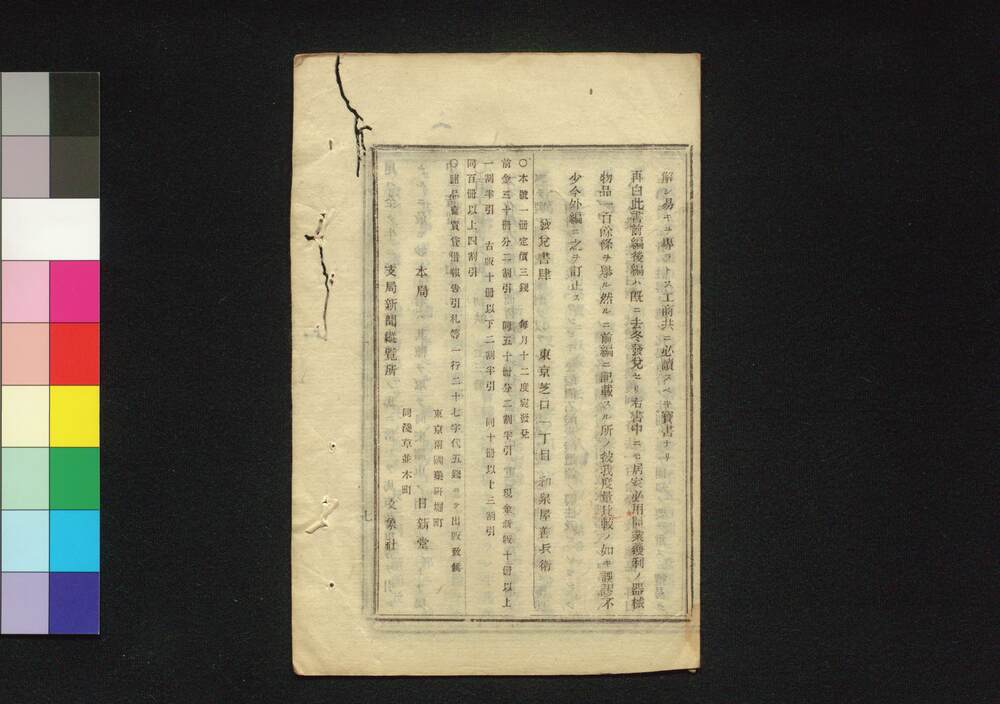 解シ易キヲ專ラトス工商共ニ必讀スベキ寶書ナリ
再白此書前編後編ハ既ニ去冬發兌セリ右書中ニモ居家必用開業獲利ノ器械
物品一百餘條ヲ擧ル然ルニ前編ニ記載スル所ノ彼我度量比較ノ如キ誤謬不
少今外編ニ之ヲ訂正ス
發兌書肆 東京芝口一丁目 和泉屋善兵衛
〇本號一冊定價三錢 每月十二度宛發兌
前金三十冊分二割引 同五十冊分二割半引 現金新板十冊以上
一割半引 古板十冊以下二割半引 同十冊以上三割引
同百冊以上四割引
〇諸品賣買貸借報告引札等一行二十七字代五錢ヲ以テ出板致候
東京兩國藥研堀町
本局 日新堂
同淺草並木町
支局新聞縱覽所 文象社
七